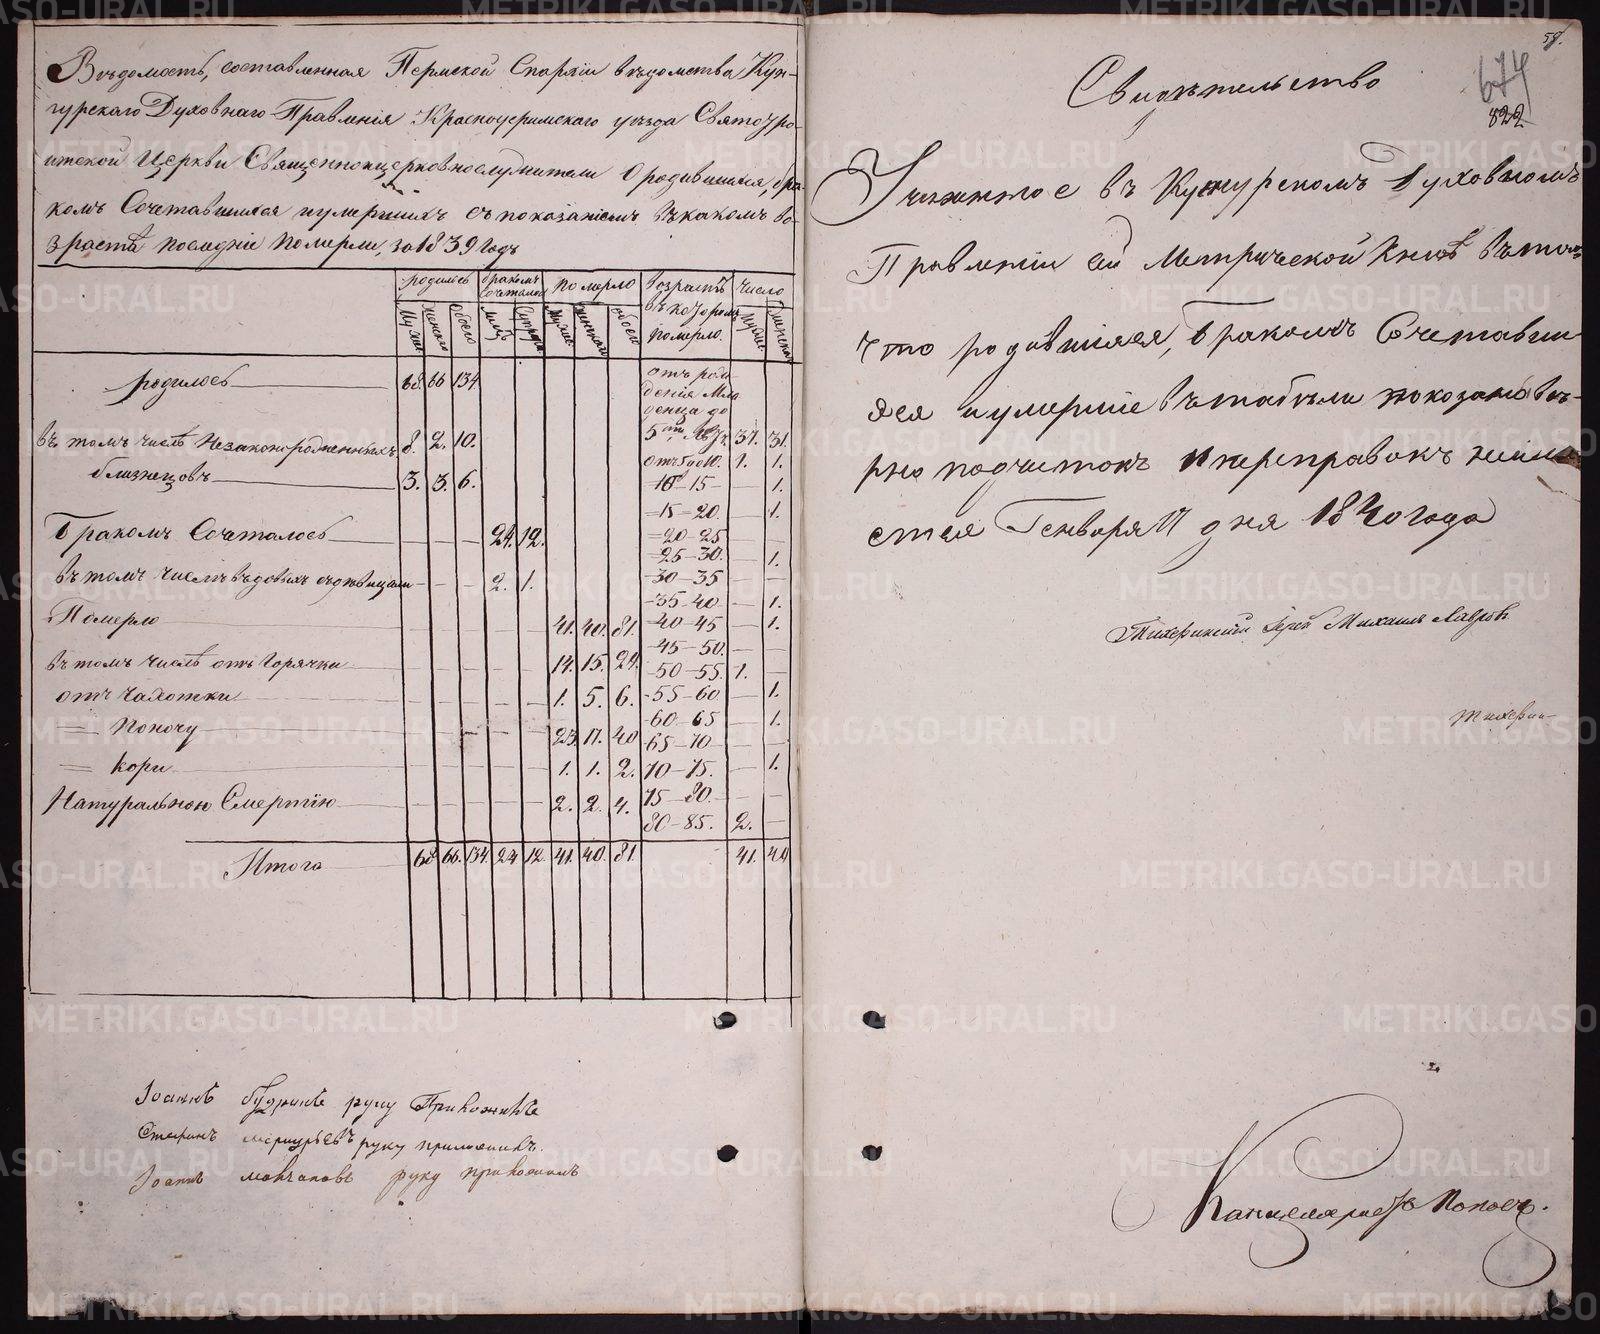 Вѣдомость, составленная Пермской Епархіи вѣдомства Кун-
гурскаго Духовнаго Правленія Красноуфимскаго уѣзда Святотро-
итской Церкви Священноцерковнослужители о родившихся, бра-
комъ Сочетавшихся и умершихъ съ показаніемъ въ какомъ во-
зрастѣ послѣдніе померли, за 1839 годъ
родилось бракомъ сочеталось померло возрастъ въ которомъ померло. число
Мужск. Женска Обоего Лицъ Супруж Мужск. Женскаго обоего Мужск. Женскаго
родилось 68 66 134 отъ рож-
дения Мла
денца до
въ томъ числѣ Незаконорожденныхъ 8. 2. 10. 5ти лѣтъ 37. 31.
отъ 5 до 10. 1. 1.
близнецовъ 3. 3. 6. 10-15 1.
15-20. 1.
Бракомъ Сочеталось 24. 12. 20-25
25-30. 1.
въ томъ числѣ вдовыхъ съ дѣвицами 2. 1. 30-35
35-40 1.
Померло 41. 40. 81. 40-45 1.
45-50.
въ томъ числѣ отъ Горячки 14. 15. 29. 50-55. 1.
отъ чахотки 1. 5. 6. 55-60 1.
= Поносу 23. 17. 40 60-65 1.
65-70
= кори 1. 1. 2. 70-75. 1.
Натуральною Смертію 2. 2. 4. 75-80.
80-85. 2.
Итого 68 66. 134. 24 12. 41. 40. 81. 41. 40
Стефанъ меркурьевъ руку приложилъ.
руку приложилъ
58.
674
822
Свидѣтельство
Учинено въ Кунгурскомъ Духовномъ
Правленіи сей Метрической Книгѣ въ томъ
что родившіяся, бракомъ Сочетавші
яся и умершіе въ табели показаны вѣ-
рно подчистокъ и переправокъ неимѣ
ется Генваря 17 дня 1840 года
Іерей Михаилъ Лавровъ
Канцеляристъ Поповъ.
METRIKI.GASO-URAL.RU